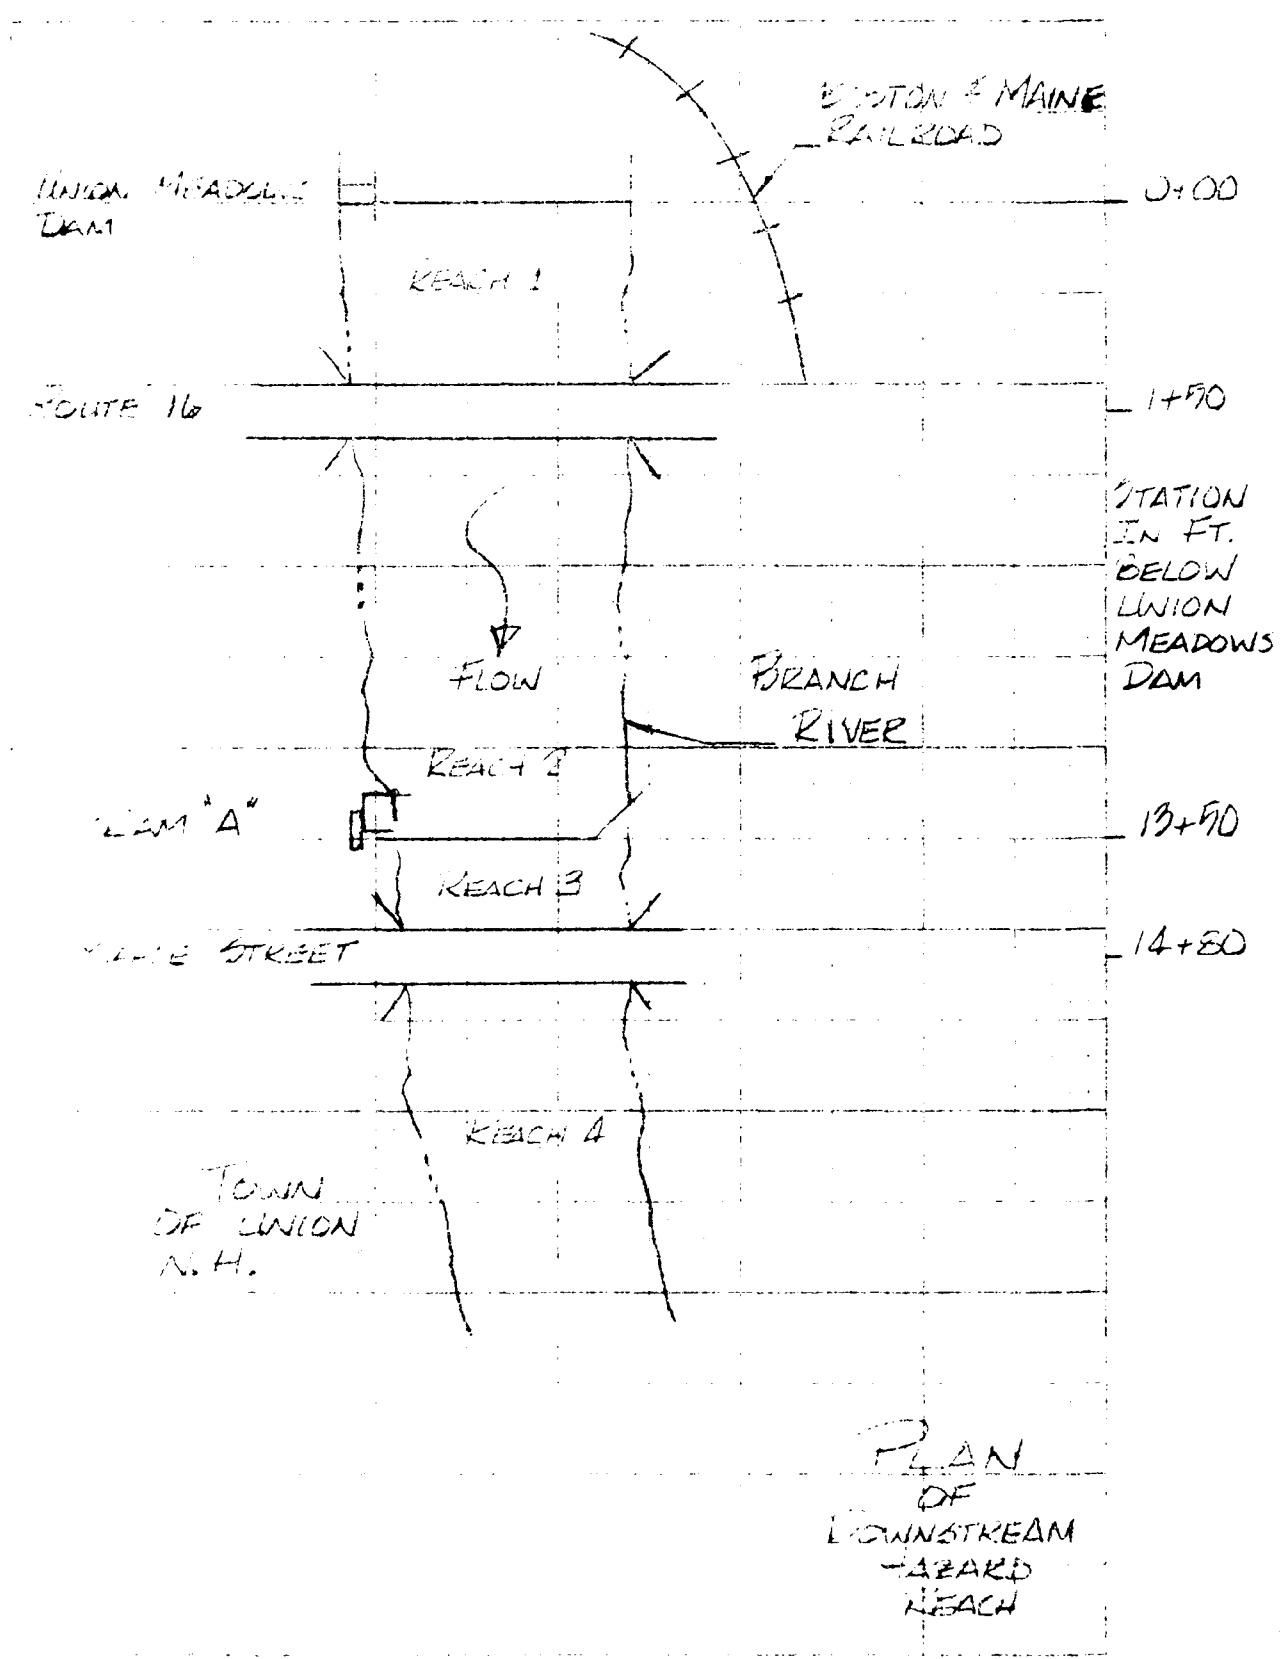 BOSTON & MAINE
RAILROAD
UNION MEADOWS
DAM
0+00
REACH 1
ROUTE 16
1+50
STATION
IN FT.
BELOW
UNION
MEADOWS
DAM
FLOW
BRANCH
RIVER
REACH 2
DAM "A"
13+50
REACH 3
STREET
14+80
REACH 4
TOWN
OF UNION
N.H.
PLAN
OF
DOWNSTREAM
HAZARD
REACH